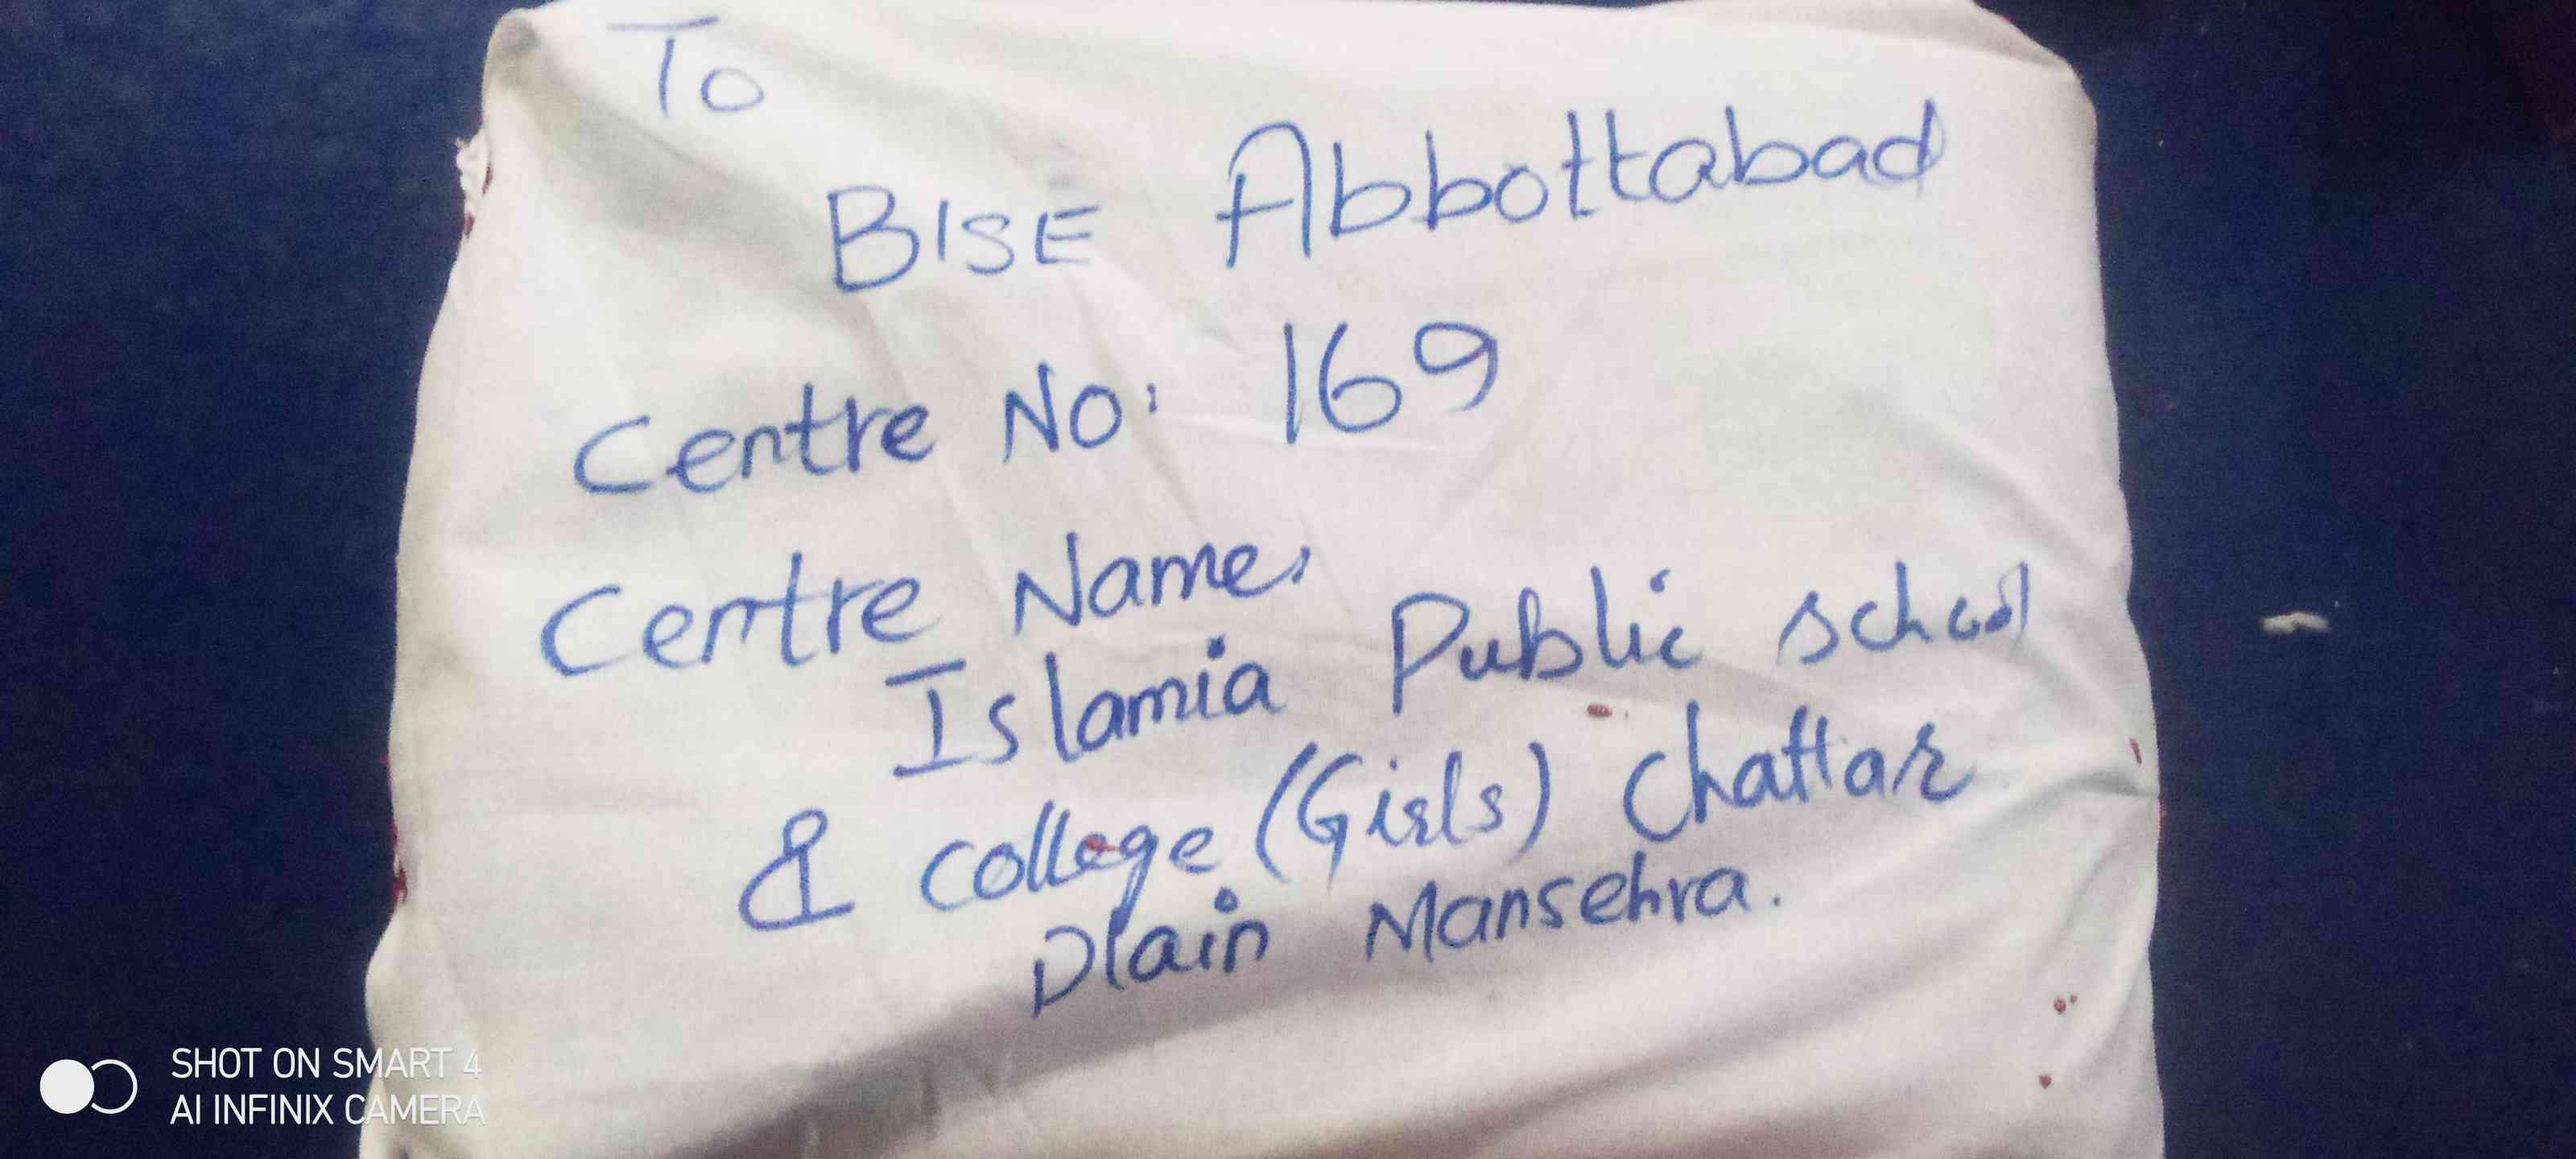 To
BISE Abbottabad
Centre No: 169
Centre Name,
Islamia Public school
& college (Girls) Chattar
Plain Mansehra.
SHOT ON SMART 4
AI INFINIX CAMERA